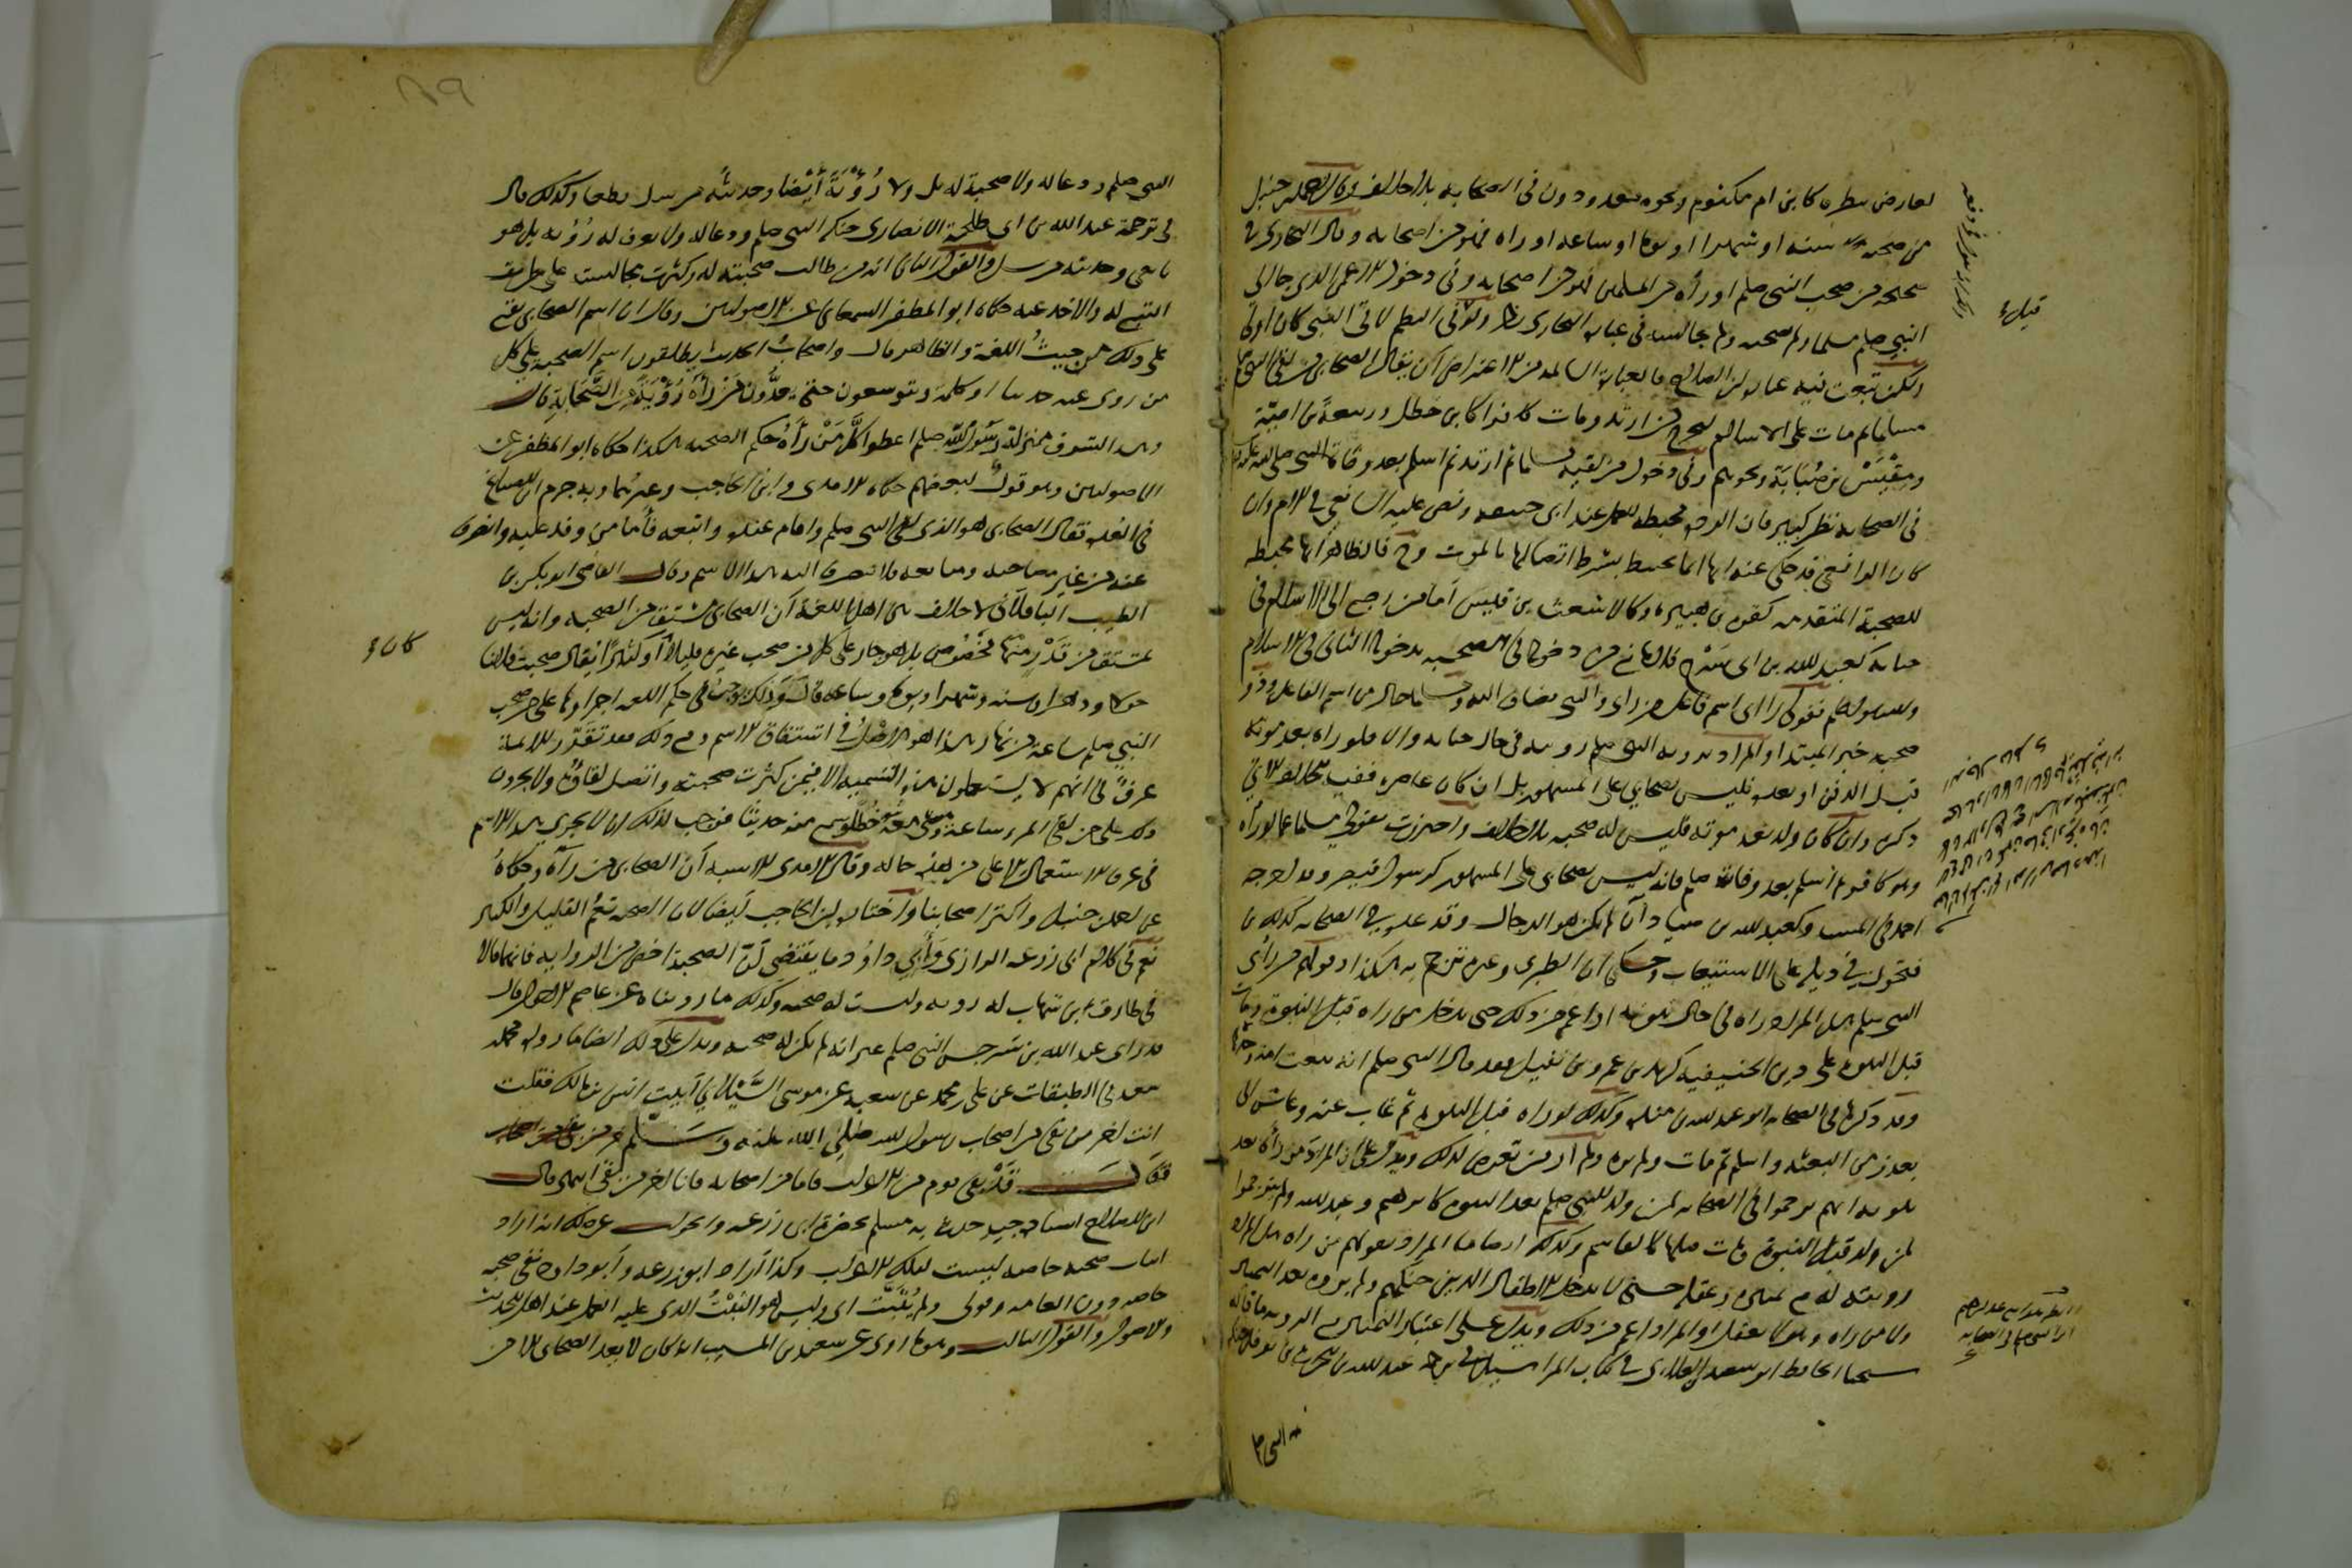 لعارض بنظره كابن ام مكتوم ونحوه معدودون في الصحابة بلا خلاف وقال احمد بن حنبل
من صحبه سنة او شهرا او يوما او ساعة او رآه فهو من اصحابه وقال البخاري في
صحيحه من صحب النبي صلعم او رآه من المسلمين فهو من اصحابه وفي دخول الاعمى الذي جا الى
النبي صلعم مسلما ولم يصحبه ولم يجالسه في عبارة البخاري نظر
ولكن تبعت فيه عبارة ابن الصلاح فالعبارة السالمة من الاعتراض ان يقال الصحابي من لقي النبي صلعم
مسلما ثم مات على الاسلام ليخرج من ارتد ومات كافرا كابن خطل وربيعة بن امية
ومقيس بن صبابة ونحوهم وفي دخول من لقيه مسلما ثم ارتد ثم اسلم بعد وفاة النبي صلعم
في الصحابة نظر كبير فان الردة محبطة للعمل عند ابي حنيفة ونص عليه الشافعي في الام وان
كان الرافعي قد حكى عنه انها انما تحبط بشرط اتصالها بالموت وح فالظاهر انها محبطة
للصحبة المتقدمة كقرة بن هبيرة وكالاشعث بن قيس اما من رجع الى الاسلام في
حياته كعبد الله بن ابي سرح فلا مانع من دخوله في الصحبة بدخوله الثاني في الاسلام
وقولهم رائي اسم فاعل من راى والنبي مضاف اليه ومسلما حال من اسم الفاعل وذو
صحبة خبر المبتدا والمراد برؤية النبي صلعم رؤيته في حال حياته والا فلو رآه بعد موته
قبل الدفن او بعده فليس بصحابي على المشهور بل ان كان عاصره ففيه الخلاف الآتي
ذكره وان كان ولد بعد موته فليس له صحبة بلا خلاف واحترزت بقولي مسلما عما لو رآه
وهو كافر ثم اسلم بعد وفاته صلعم فانه ليس بصحابي على المشهور كرسول قيصر وقد خرجه
احمد في المسند وكعبد الله بن صياد ان لم يكن هو الدجال وقد عده في الصحابة كذلك
فتحون في ذيله على الاستيعاب وحكى ان الطبري وغيره ترجم به هكذا وقولهم من رأى
النبي صلعم هل المراد رآه في حال نبوته او اعم من ذلك حتى يدخل من رآه قبل النبوة ومات
قبل النبوة على دين الحنيفية كزيد بن عمرو بن نفيل فقد قال النبي صلعم انه يبعث امة وحده
وقد ذكره في الصحابة ابو عبد الله بن منده وكذلك لو رآه قبل النبوة ثم غاب عنه وعاش الى
بعد زمن البعثة واسلم ثم مات ولم يره ولم ار من تعرض لذلك ويدل على ان المراد من رآه بعد
نبوته انهم ترجموا في الصحابة لمن ولد للنبي صلعم بعد النبوة كابرهيم وعبد الله ولم يترجموا
لمن ولد قبل النبوة ومات قبلها كالقاسم وكذلك ايضا ما المراد بقولهم من رآه هل المراد
رؤيته له مع تمييزه وعقله حتى لا يدخل الاطفال الذين حنكهم ولم يروه بعد التمييز
ولا من رآه وهو لا يعقل او المراد اعم من ذلك ويدل على اعتبار التمييز مع الرؤية ما قاله
شيخنا الحافظ ابو سعيد العلائي في كتاب المراسيل في ترجمة عبد الله بن الحارث بن نوفل حنكه
النبي صلعم ودعا له ولا صحبة له بل ولا رُؤْيَةَ أَيْضا وحديثه مرسل قطعا وكذلك قال
في ترجمة عبد الله بن ابي طلحة الانصاري حنكه النبي صلعم ودعا له ولا يعرف له رؤية بل هو
تابعي وحديثه مرسل والقول الثاني انه من طالت صحبته له وكثرت مجالسته على طريق
التبع له والاخذ عنه حكاه ابو المظفر السمعاني عن الاصوليين وقال ان اسم الصحابي يقع
على ذلك من حيث اللغة والظاهر قال واصحاب الحديث يطلقون اسم الصحبة على كل
من روى عنه حديثا او كلمة ويتوسعون حتى يعدّون من رآه رُؤْيَةً من الصَّحَابة قال
وهذا لشرف منزلة رسول الله صلعم اعطوا كل من رآه حكم الصحبة هكذا حكاه ابو المظفر عن
الاصوليين وهو قول لبعضهم حكاه الآمدي وابن الحاجب وغيرهما وبه جزم ابن الصباغ
في العدة فقال الصحابي هو الذي لقي النبي صلعم واقام عنده واتبعه فاما من وفد عليه وانصرف
عنه من غير مصاحبة ومتابعة فلا ينصرف اليه هذا الاسم وقال القاضي ابو بكر بن
الطيب الباقلاني لا خلاف بين اهل اللغة ان الصحابي مشتق من الصحبة وانه ليس
بمشتق من قدر منها مخصوص بل هو جار على كل من صحب غيره قليلا او كثيرا يقال صحبت فلانا
حولا ودهرا وسنة وشهرا ويوما وساعة قال وذلك يوجب في حكم اللغة اجراءها على من صحب
النبي صلعم ساعة من نهار هذا هو الاصل في اشتقاق الاسم ومع ذلك فقد تقرر للائمة
عرف في انهم لا يستعملون هذه التسمية الا فيمن كثرت صحبته واتصل لقاؤه ولا يجرون
ذلك على من لقي المرء ساعة ومشى معه خُطًى وسمع منه حديثا فوجب لذلك ان لا يجري هذا الاسم
في عرف الاستعمال الا على من هذه حاله وقال الآمدي الاشبه ان الصحابي من رآه وحكاه
عن احمد بن حنبل واكثر اصحابنا واختاره ابن الحاجب ايضا لان الصحبة تعم القليل والكثير
نعم في كلام ابي زرعة الرازي وأبي داود ما يقتضي ان الصحبة اخص من الرؤية فانهما قالا
في طارق بن شهاب له رؤية وليست له صحبة وكذلك ما رويناه عن عاصم الاحول قال
قد راى عبد الله بن سرجس النبي صلعم غير انه لم يكن له صحبة ويدل على ذلك ايضا ما رواه محمد
سعد في الطبقات عن علي بن محمد عن شعبة عن موسى السَّيْلاني اتيت انس بن مالك فقلت
انت اخر من بقي من اصحاب رسول الله صلى الله عليه وسلم
قال قَدْ بقي قوم من الاعراب فاما من اصحابه فانا اخر من بقي انتهى قال
ابن الصلاح اسناده جيد حدث به مسلم بحضرة ابي زرعة والجواب عن ذلك انه اراد
اثبات صحبة خاصة ليست لتلك الاعراب وكذا اراد ابو زرعة وأبو داود نفي صحبة
خاصة دون العامة وقولي ولم يُثَبَّت اي وليس هو الثبْتُ الذي عليه العمل عند اهل الحديث
والاصول والقول الثالث وهو ما روي عن سعيد بن المسيب انه كان لا يعد الصحابي الا من